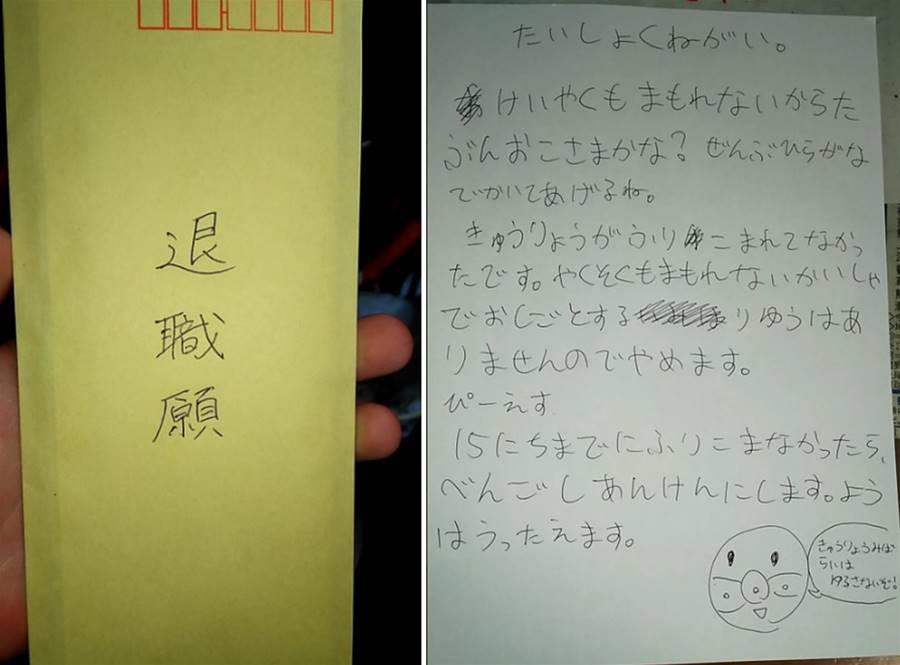 退職願
たいしょくねがい。
けいやくもまもれないからた
ぶんおこさまかな?ぜんぶひらがな
でかいてあげるね。
きゅうりょうがふりこまれてなかっ
たです。やくそくもまもれないかいしゃ
でおしごとするりゆうはあ
りませんのでやめます。
ぴーえす
15にちまでにふりこまなかったら、
べんごしあんけんにします。よう
はうったえます。
きゅうりょうみば
らいは
ゆるさないぞ!